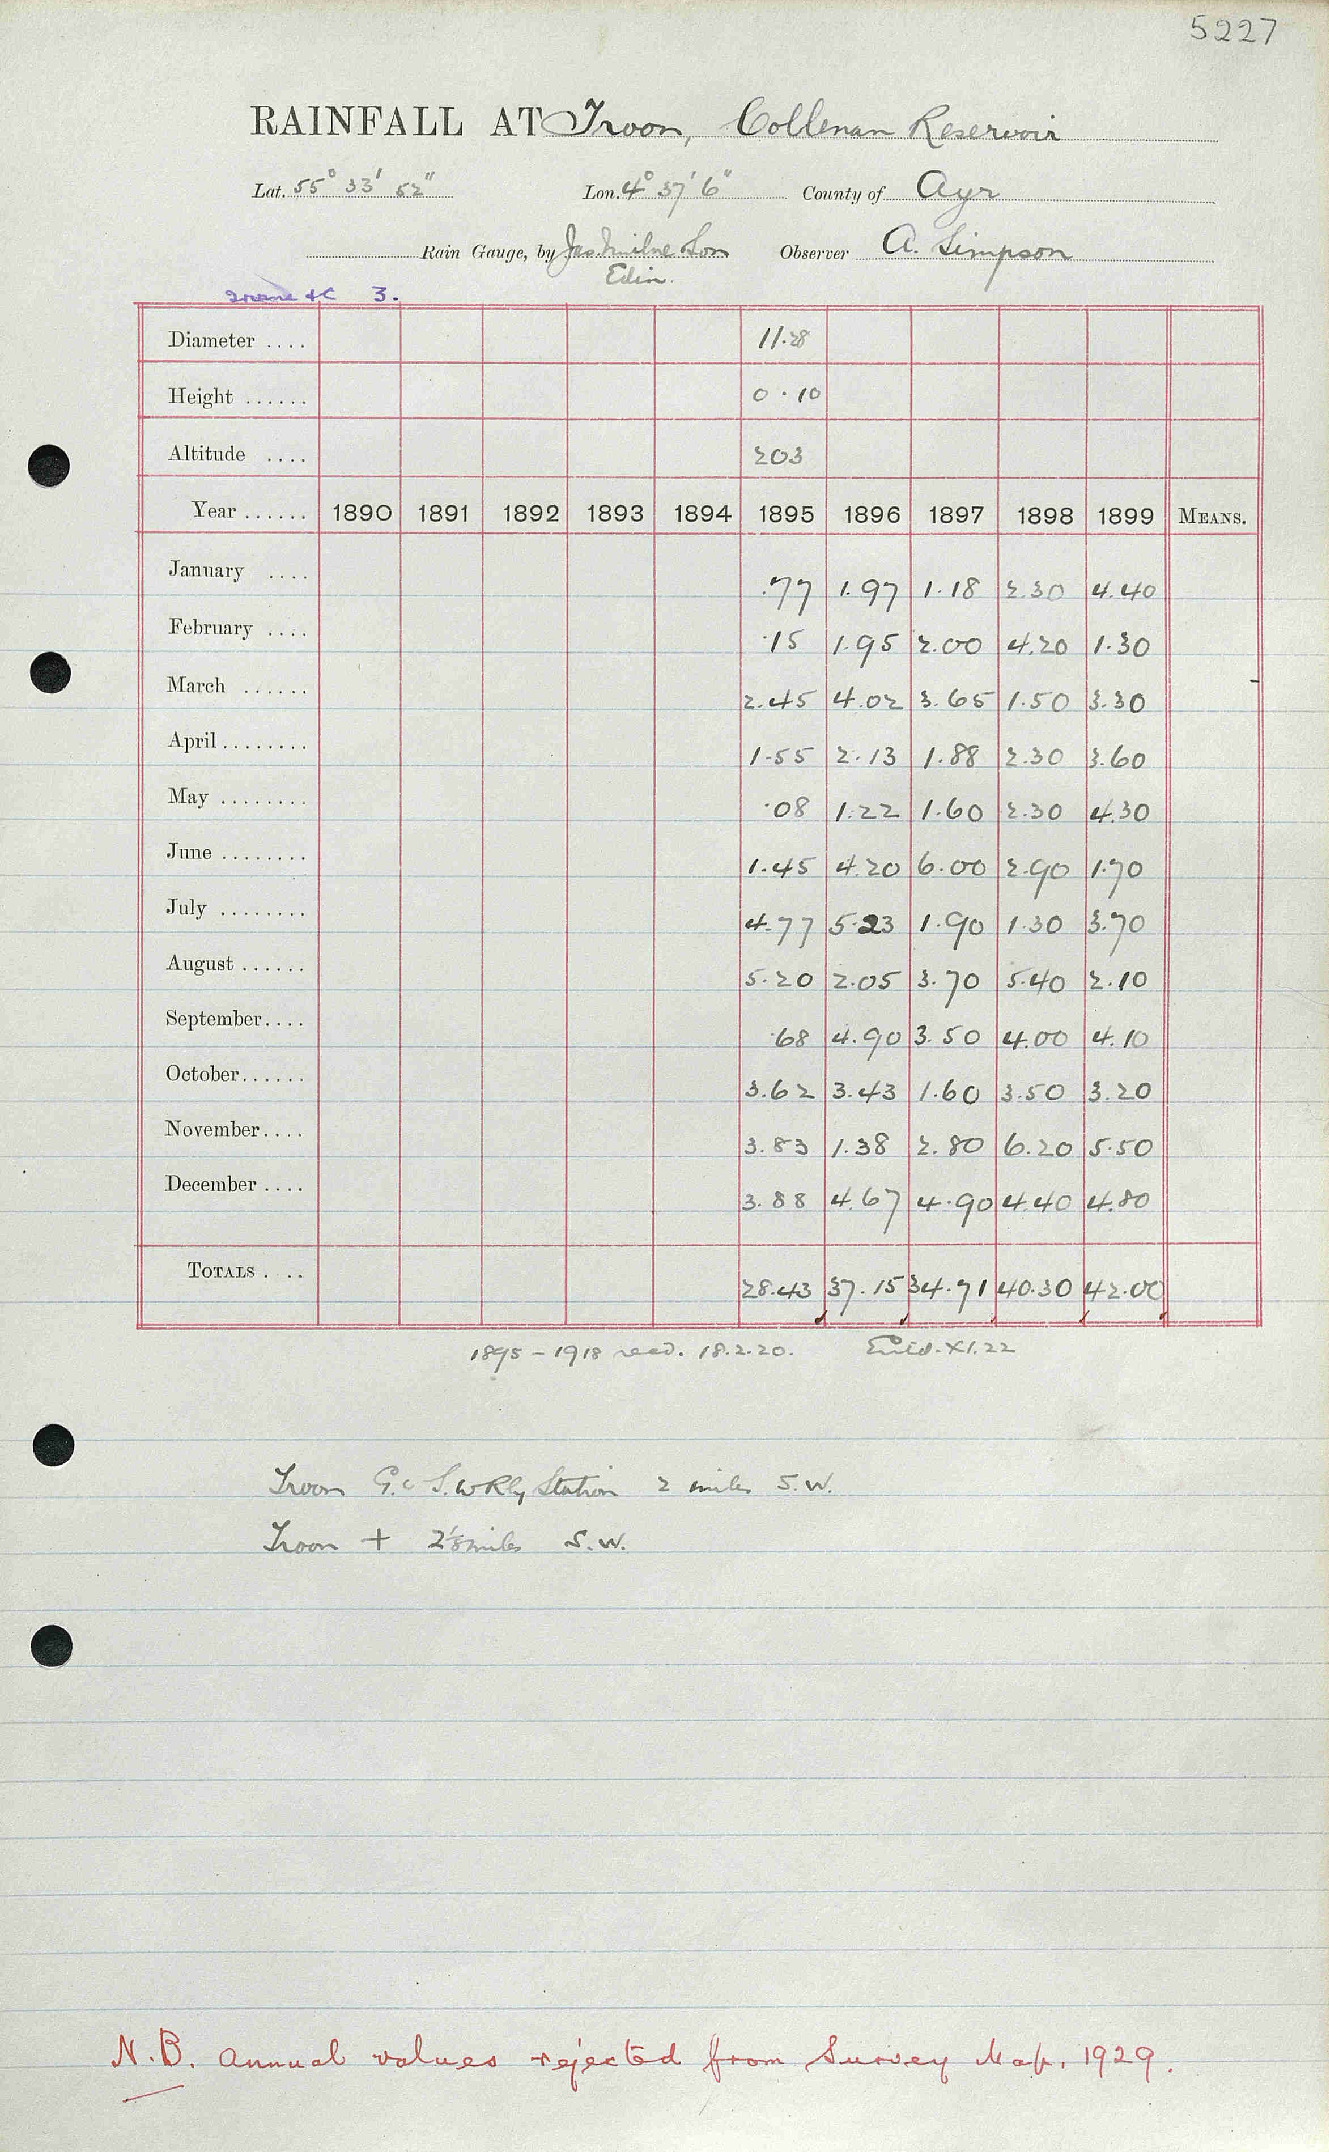 5227
RAINFALL AT Troon, Collenan Reservoir
Lat. 55° 33' 52" Lon. 4° 37' 6" County of Ayr
Rain Gauge, by Jas Milne & Son Observer A. Simpson
Edin.
3.
Diameter .... 11.28
Height ...... 0.10
Altitude .... 203
Year ...... 1890 1891 1892 1893 1894 1895 1896 1897 1898 1899 MEANS.
January .... .77 1.97 1.18 2.30 4.40
February .... .15 1.95 2.00 4.20 1.30
March ...... 2.45 4.02 3.65 1.50 3.30
April ........ 1.55 2.13 1.88 2.30 3.60
May ........ .08 1.22 1.60 2.30 4.30
June ........ 1.45 4.20 6.00 2.90 1.70
July ........ 4.77 5.23 1.90 1.30 3.70
August ...... 5.20 2.05 3.70 5.40 2.10
September.... .68 4.90 3.50 4.00 4.10
October...... 3.62 3.43 1.60 3.50 3.20
November.... 3.83 1.38 2.80 6.20 5.50
December .... 3.88 4.67 4.90 4.40 4.80
TOTALS . .. 28.43 37.15 34.71 40.30 42.00
1895 - 1918 recd. 18.2.20. Entd. XI.22
Troon G. & S.W Rly Station 2 miles S.W.
Troon + 2⅛ miles S.W.
N.B. Annual values rejected from Survey Map. 1929.